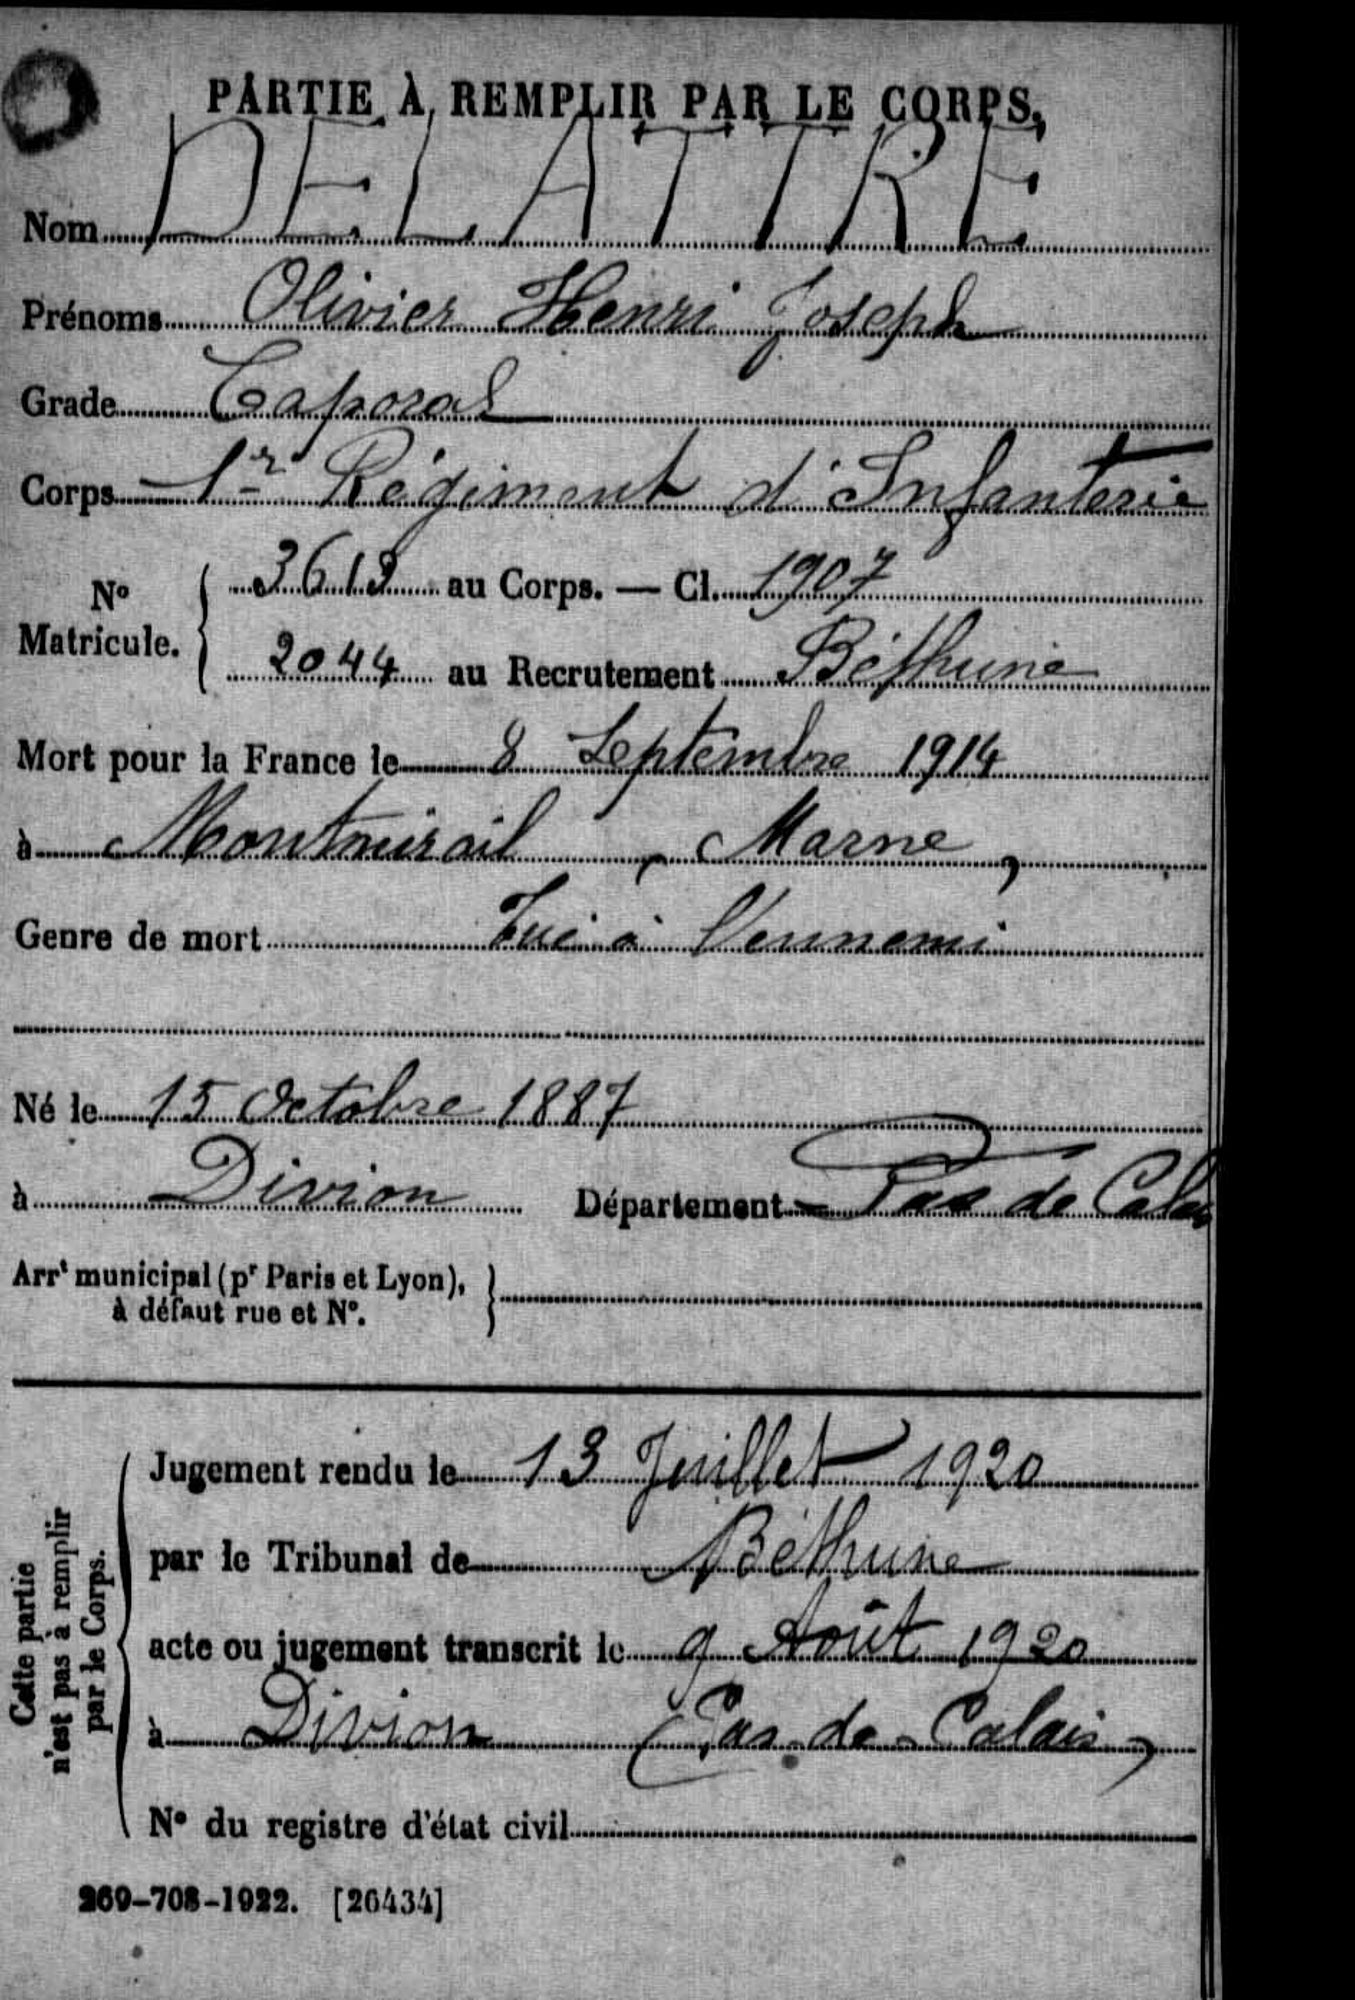 PARTIE À REMPLIR PAR LE CORPS.
Nom DELATTRE
Prénoms Olivier Henri Joseph
Grade Caporal
Corps 1r Régiment d'Infanterie
No Matricule. { 3613 au Corps. — Cl. 1907
2044 au Recrutement Béthune
Mort pour la France le 8 Septembre 1914
à Montmirail, Marne,
Genre de mort Tué à l'ennemi
Né le 15 Octobre 1887
à Divion Département Pas de Calais
Arrt municipal (pr Paris et Lyon), }
à défaut rue et No.
Cette partie
n'est pas à remplir
par le Corps.
Jugement rendu le 13 Juillet 1920
par le Tribunal de Béthune
acte ou jugement transcrit le 9 Août 1920
à Divion (Pas-de-Calais)
No du registre d'état civil
269-708-1922. [26434]